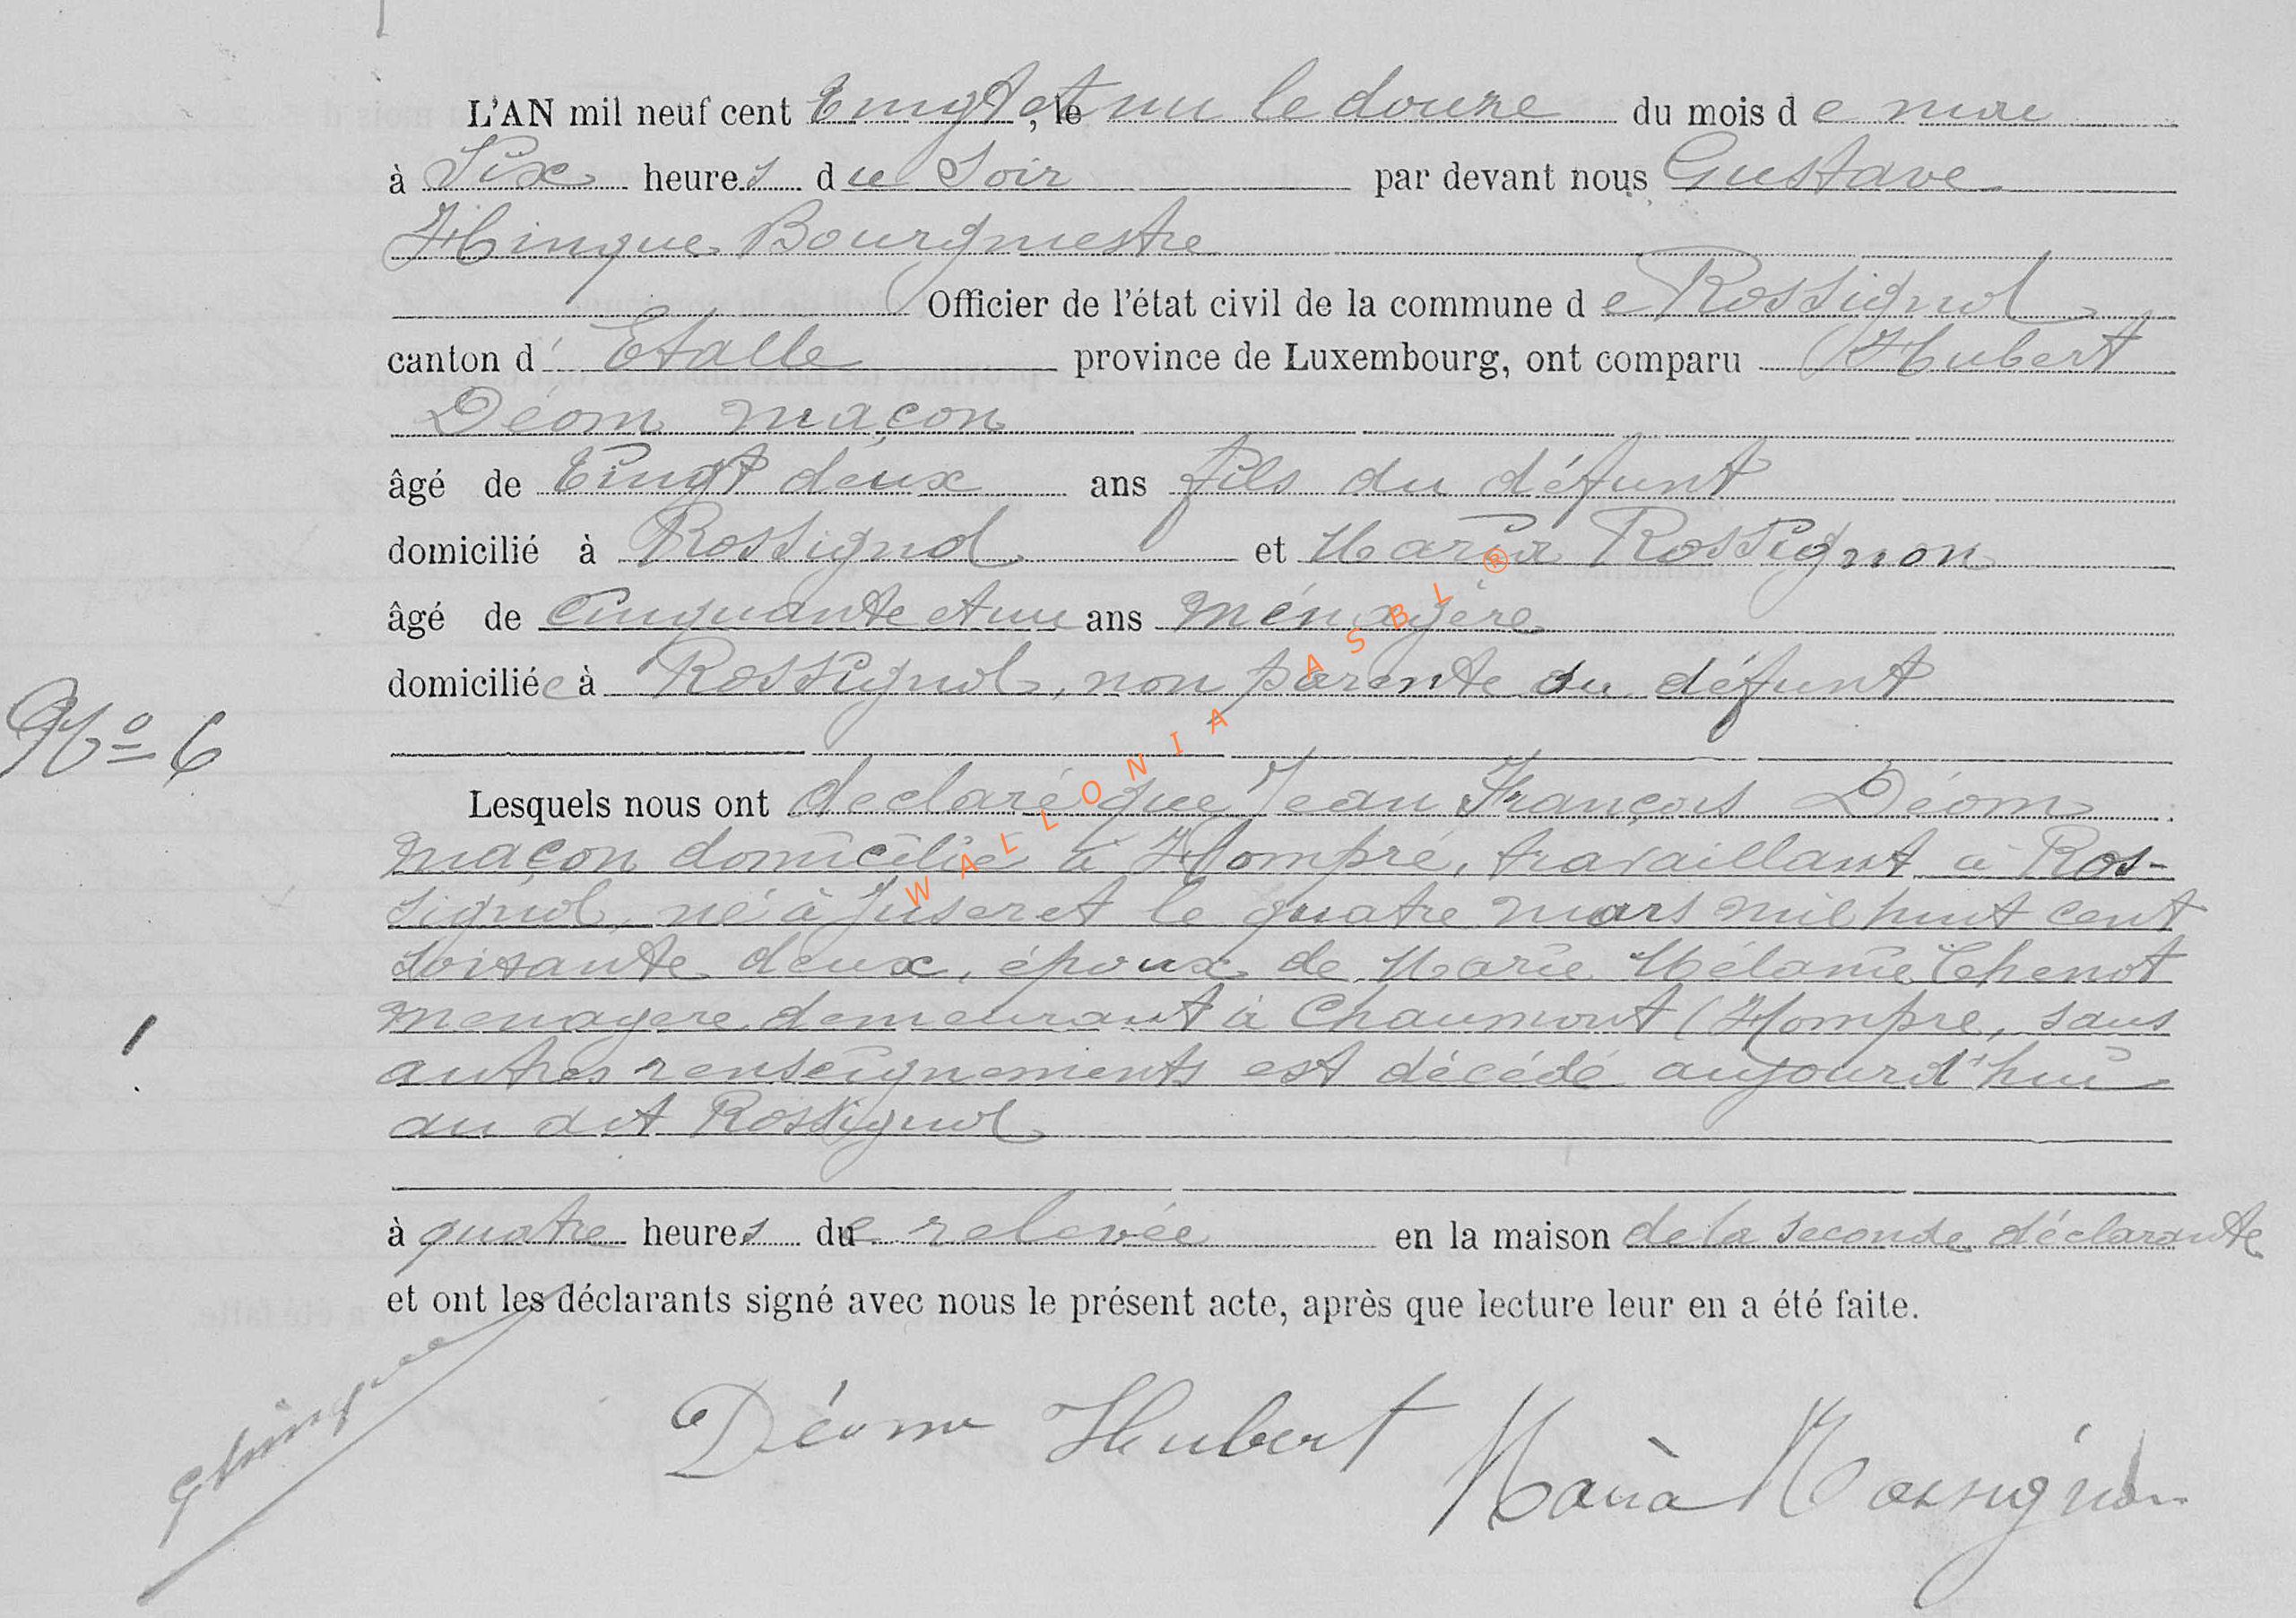 L'AN mil neuf cent vingt et un , le le douze du mois de mai
à Six heures du Soir par devant nous Gustave
Hinque Bourgmestre
Officier de l'état civil de la commune de Rossignol
canton d' Etalle province de Luxembourg, ont comparu Hubert
Déom maçon
âgé de vingt deux ans fils du défunt
domicilié à Rossignol et Maria Rossignon
âgé de cinquante et un ans ménagère
domiciliée à Rossignol, non parente du défunt
N° 6
Lesquels nous ont declaré que Jean François Déom
maçon domicilié à Hompré, travaillant à Ros-
signol, né à Juseret le quatre mars mil huit cent
soixante deux, époux de Marie Mélanie Chenot
menagere demeurant à Chaumont (Hompre, sans
autres renseignements est décédé aujourd'hui
au dit Rossignol
à quatre heures de relevée en la maison de la seconde déclarante
et ont les déclarants signé avec nous le présent acte, après que lecture leur en a été faite.
GHinque
Déom Hubert Maria Rossignon
WALLONIA ASBL ®